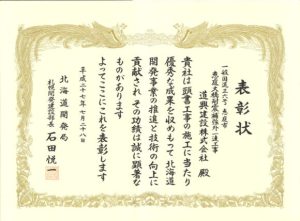 表彰状
一般国道三六号 恵庭市
恵庭大橋耐震補強外一連工事
道興建設株式会社 殿
貴社は頭書工事の施工に当たり
優秀な成果を収めもって北海道
開発事業の推進と技術の向上に
貢献され その功績は誠に顕著な
ものがあります
よってここにこれを表彰します
平成二十七年七月二十八日
北海道開発局
札幌開発建設部長 石田悦一